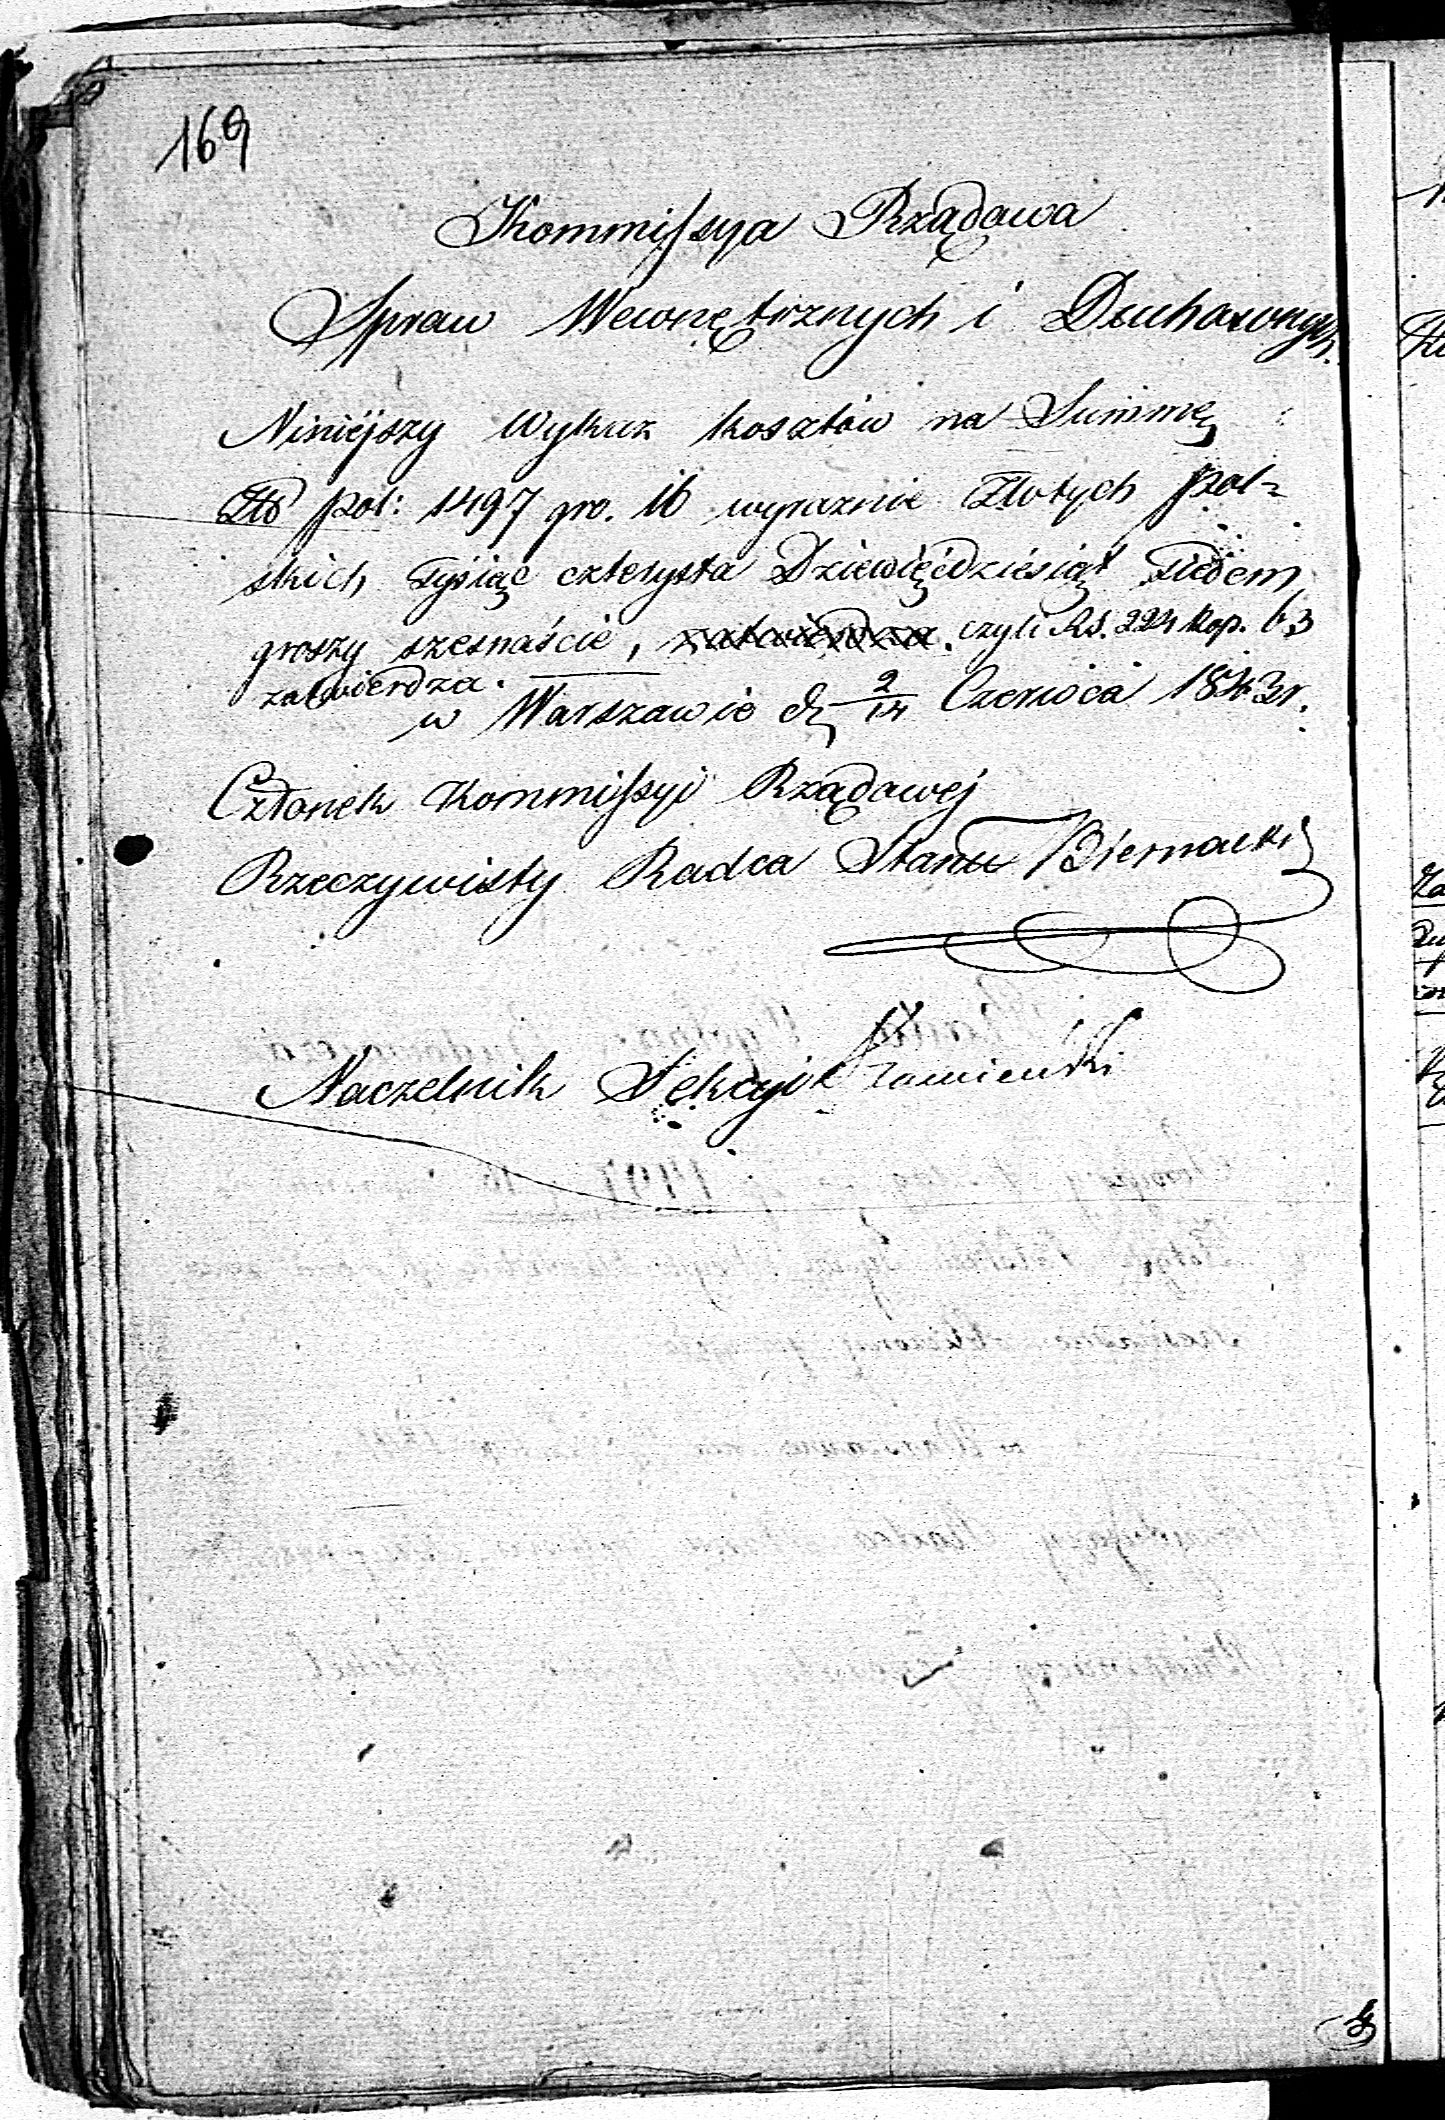 169
Kommissya Rządowa
Spraw Wewnętrznych i Duchownych
Niniejszy Wykaz kosztów na Summę
Złt pol: 1497 gro. 16 wyraznie Złotych pol-
skich Tysiąc czterysta Dziewięćdziesiąt siedem
groszy szesnaście, zatwierdza. czyli Rs. 224 kop. 63
zatwierdza.
w Warszawie d. 2/14 Czerwca 1843 r.
Członek Kommissyi Rządowej
Rzeczywisty Radca Stanu Biernacki
Naczelnik Sekcyi